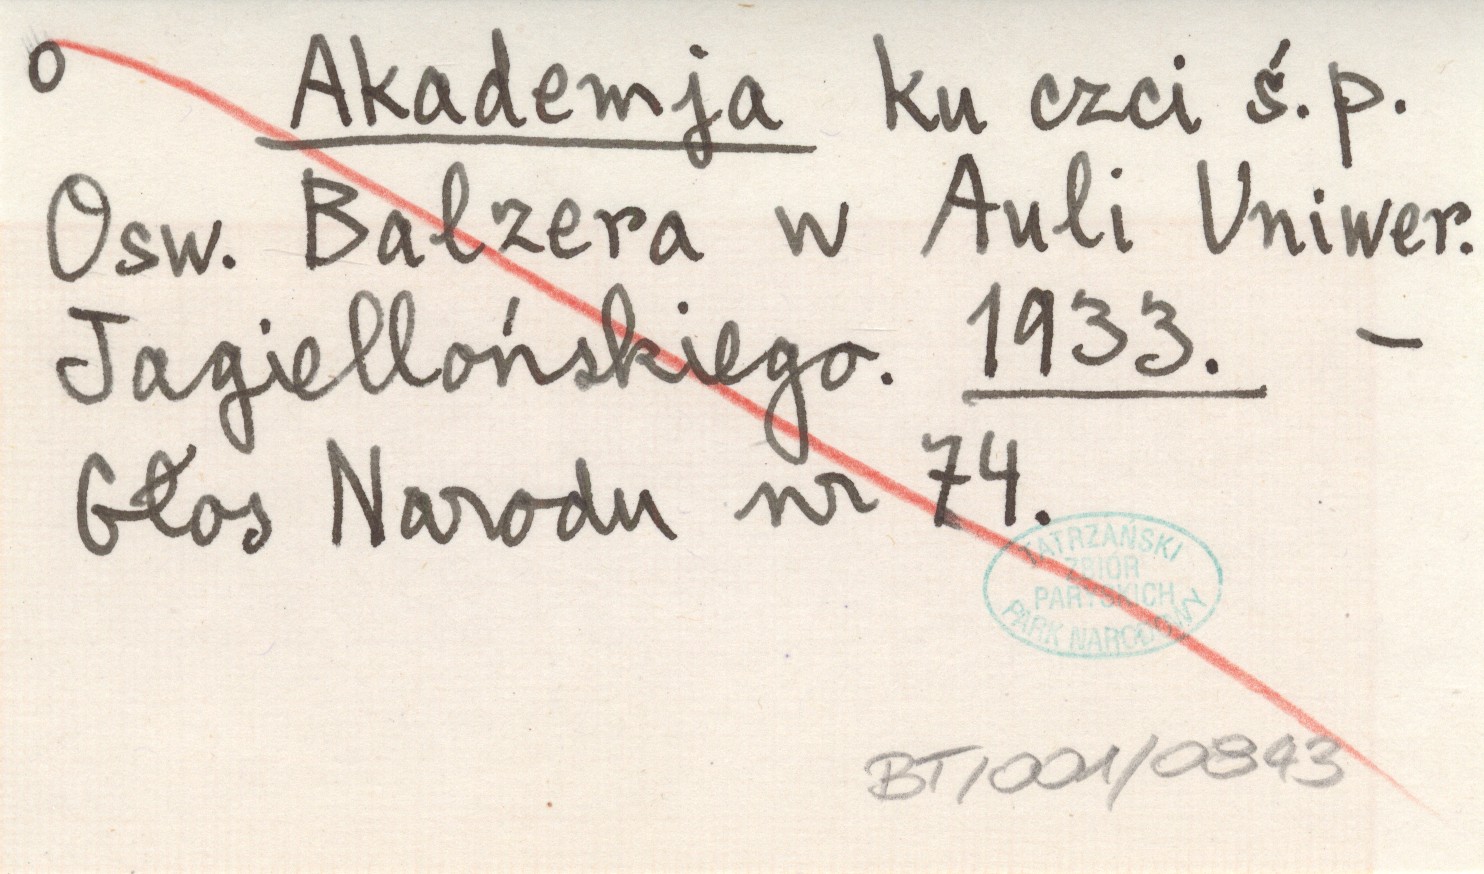 o Akademja ku czci ś.p.
Osw. Balzera w Auli Uniwer.
Jagiellońskiego. 1933. –
Głos Narodu nr 74.
TATRZAŃSKI
ZBIÓR
PARYSKICH
PARK NARODOWY
BT/001/0843